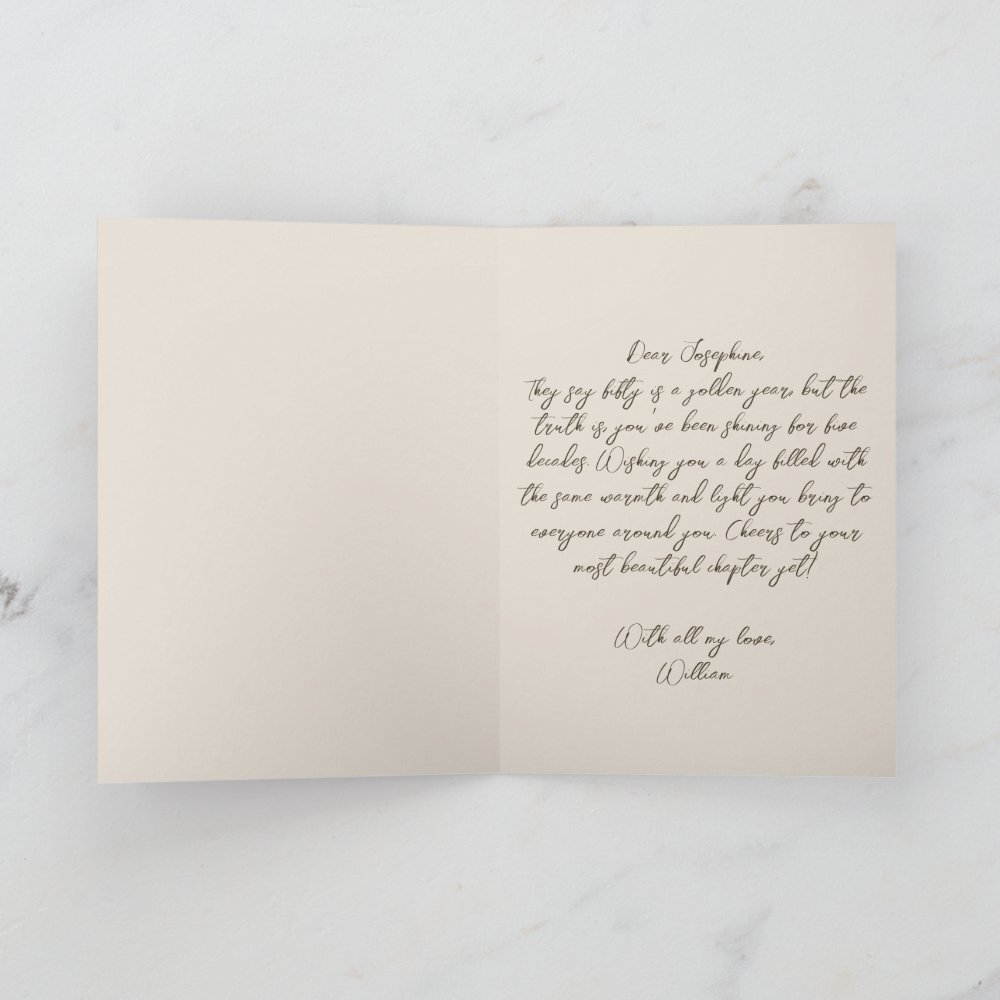 Dear Josephine,
They say fifty is a golden year, but the
truth is, you've been shining for five
decades. Wishing you a day filled with
the same warmth and light you bring to
everyone around you. Cheers to your
most beautiful chapter yet!
With all my love,
William